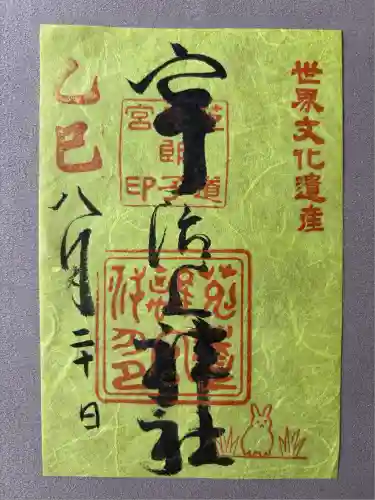 世界文化遺産
宇治上神社
菟道
朗子
宮印
乙巳
八月二十日